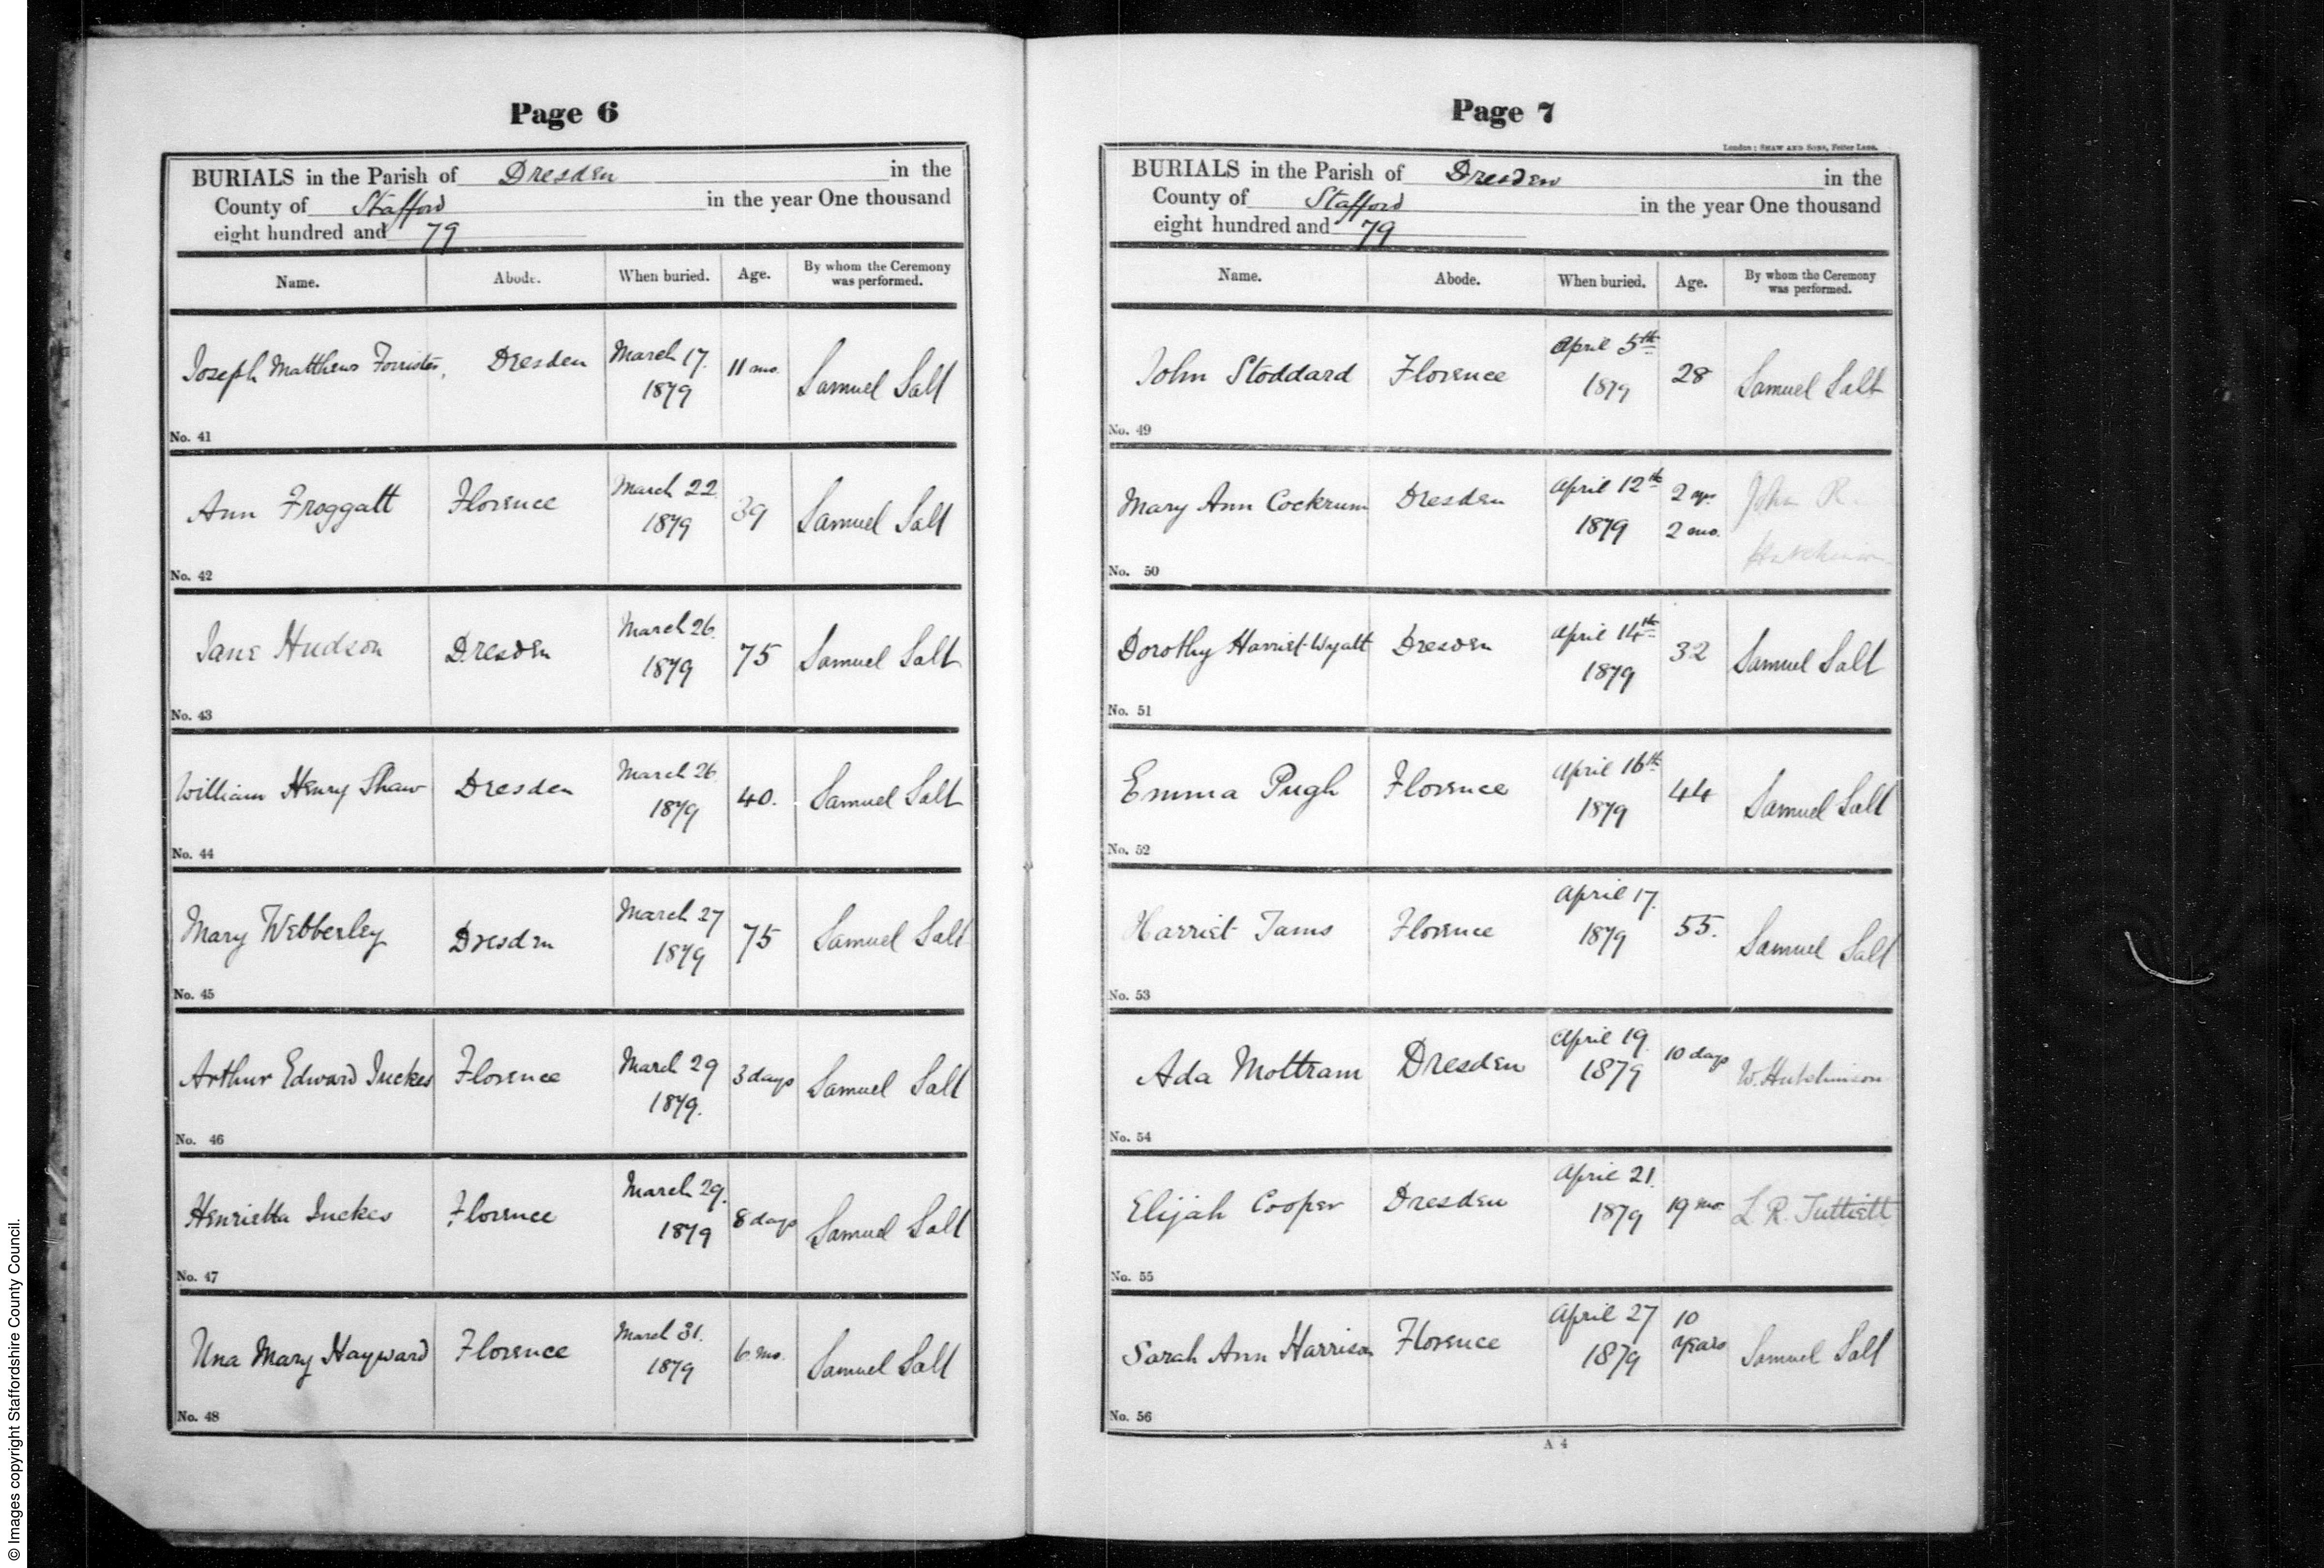 Page 6
BURIALS in the Parish of Dresden in the
County of Stafford in the year One thousand
eight hundred and 79
Name. Abode. When buried. Age. By whom the Ceremony was performed.
Joseph Matthews Forrister, Dresden March 17. 1879 11 mo. Samuel Salt
No. 41
Ann Froggatt Florence March 22 1879 39 Samuel Salt
No. 42
Jane Hudson Dresden March 26. 1879 75 Samuel Salt
No. 43
William Henry Shaw Dresden March 26 1879 40. Samuel Salt
No. 44
Mary Webberley Dresden March 27 1879 75 Samuel Salt
No. 45
Arthur Edward Inckes Florence March 29 1879. 3 days Samuel Salt
No. 46
Henrietta Inckes Florence March 29. 1879 8 days Samuel Salt
No. 47
Una Mary Hayward Florence March 31. 1879 6 mo. Samuel Salt
No. 48
Page 7
London: SHAW AND SONS, Fetter Lane.
BURIALS in the Parish of Dresden in the
County of Stafford in the year One thousand
eight hundred and 79
Name. Abode. When buried. Age. By whom the Ceremony was performed.
John Stoddard Florence April 5th 1879 28 Samuel Salt
No. 49
Mary Ann Cockrum Dresden April 12th 1879 2 yrs 2 mo. John R. Hutchinson
No. 50
Dorothy Harriet Wyatt Dresden April 14th 1879 32 Samuel Salt
No. 51
Emma Pugh Florence April 16th 1879 44 Samuel Salt
No. 52
Harriet Tams Florence April 17. 1879 55. Samuel Salt
No. 53
Ada Mottram Dresden April 19. 1879 10 days W. Hutchinson
No. 54
Elijah Cooper Dresden April 21. 1879 19 mo. L. R. Tuttiett
No. 55
Sarah Ann Harrison Florence April 27 1879 10 years Samuel Salt
No. 56
A 4
© Images copyright Staffordshire County Council.